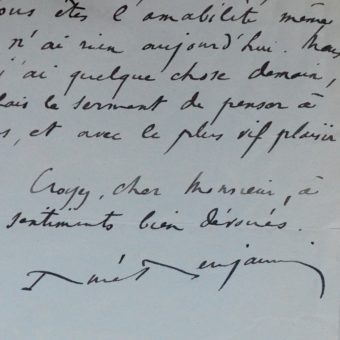 ous êtes l'amabilité même
n'ai rien aujourd'hui. Mais
j'ai quelque chose demain,
ais le serment de penser à
s, et avec le plus vif plaisir
Croyez, cher Monsieur, à
sentiments bien dévoués.
René Benjamin